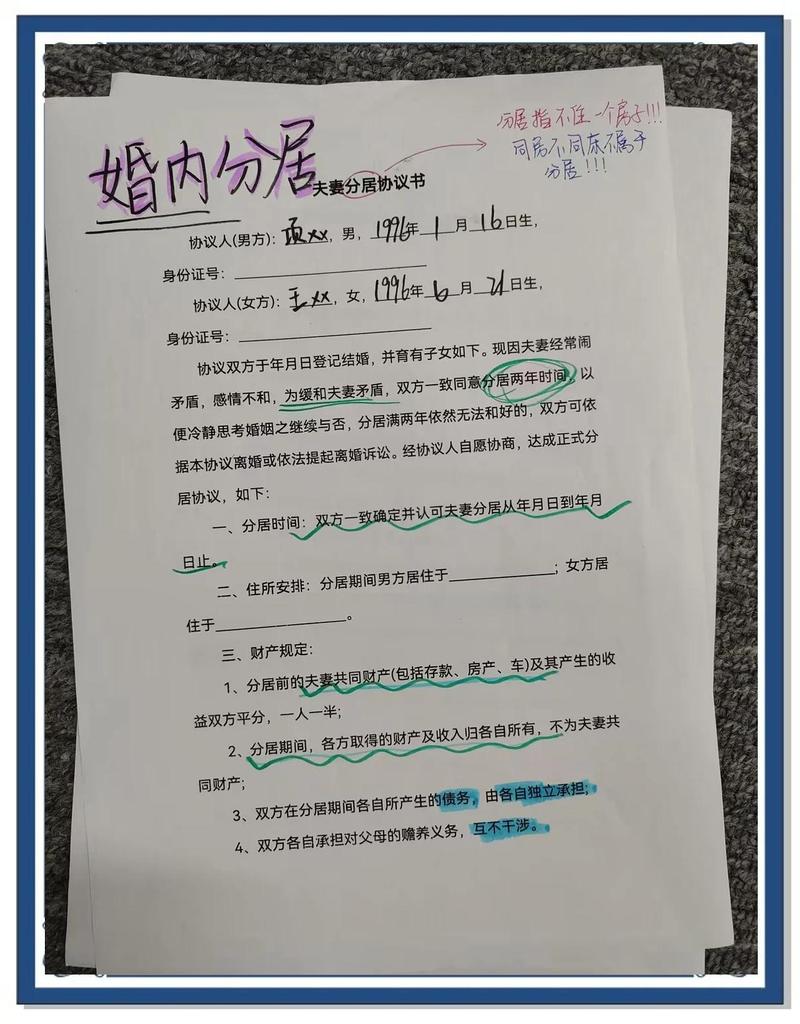 婚内分居
分居指不住一个房子!!!
同房不同床不属于
分居!!!
夫妻分居协议书
协议人(男方): 项xx, 男, 1996年1月16日生,
身份证号:
协议人(女方): 王xx, 女, 1996年6月21日生,
身份证号:
协议双方于年月日登记结婚，并育有子女如下。现因夫妻经常闹
矛盾，感情不和，为缓和夫妻矛盾，双方一致同意分居两年时间，以
便冷静思考婚姻之继续与否，分居满两年依然无法和好的，双方可依
据本协议离婚或依法提起离婚诉讼。经协议人自愿协商，达成正式分
居协议，如下：
一、分居时间：双方一致确定并认可夫妻分居从年月日到年月
日止。
二、住所安排：分居期间男方居住于____________；女方居
住于______________。
三、财产规定：
1、分居前的夫妻共同财产(包括存款、房产、车)及其产生的收
益双方平分，一人一半;
2、分居期间，各方取得的财产及收入归各自所有，不为夫妻共
同财产;
3、双方在分居期间各自所产生的债务，由各自独立承担;
4、双方各自承担对父母的赡养义务，互不干涉。